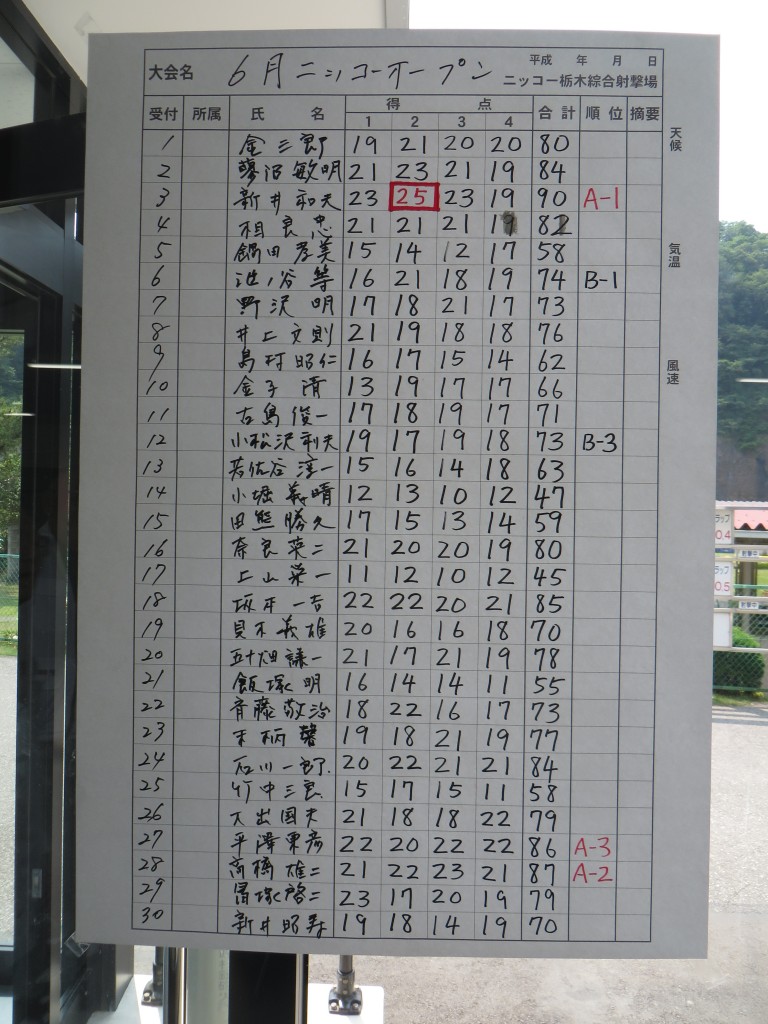 大会名 6月ニッコーオープン 平成 年 月 日
ニッコー栃木綜合射撃場
受付 所属 氏 名 得 点 合計 順位 摘要
1 2 3 4
天候
気温
風速
1 金三郎 19 21 20 20 80
2 敏明 21 23 21 19 84
3 新井和夫 23 25 23 19 90 A-1
4 相良忠 21 21 21 19 82
5 鍋田孝美 15 14 12 17 58
6 池ノ谷等 16 21 18 19 74 B-1
7 野沢明 17 18 21 17 73
8 井上文則 21 19 18 18 76
9 島村昭仁 16 17 15 14 62
10 金子清 13 19 17 17 66
11 古島俊一 17 18 19 17 71
12 小松沢利夫 19 17 19 18 73 B-3
13 若佐谷淳一 15 16 14 18 63
14 小堀義晴 12 13 10 12 47
15 田熊勝久 17 15 13 14 59
16 奈良英二 21 20 20 19 80
17 上山栄一 11 12 10 12 45
18 坂平一吉 22 22 20 21 85
19 貝木義雄 20 16 16 18 70
20 五十畑謙一 21 17 21 19 78
21 飯塚明 16 14 14 11 55
22 斉藤敬治 18 22 16 17 73
23 19 18 21 19 77
24 石川一郎 20 22 21 21 84
25 竹中三良 15 17 15 11 58
26 大出国夫 21 18 18 22 79
27 平澤東彦 22 20 22 22 86 A-3
28 高橋雄二 21 22 23 21 87 A-2
29 啓二 23 17 20 19 79
30 新井昭寿 19 18 14 19 70
ラップ
0.4
ラップ
0.5